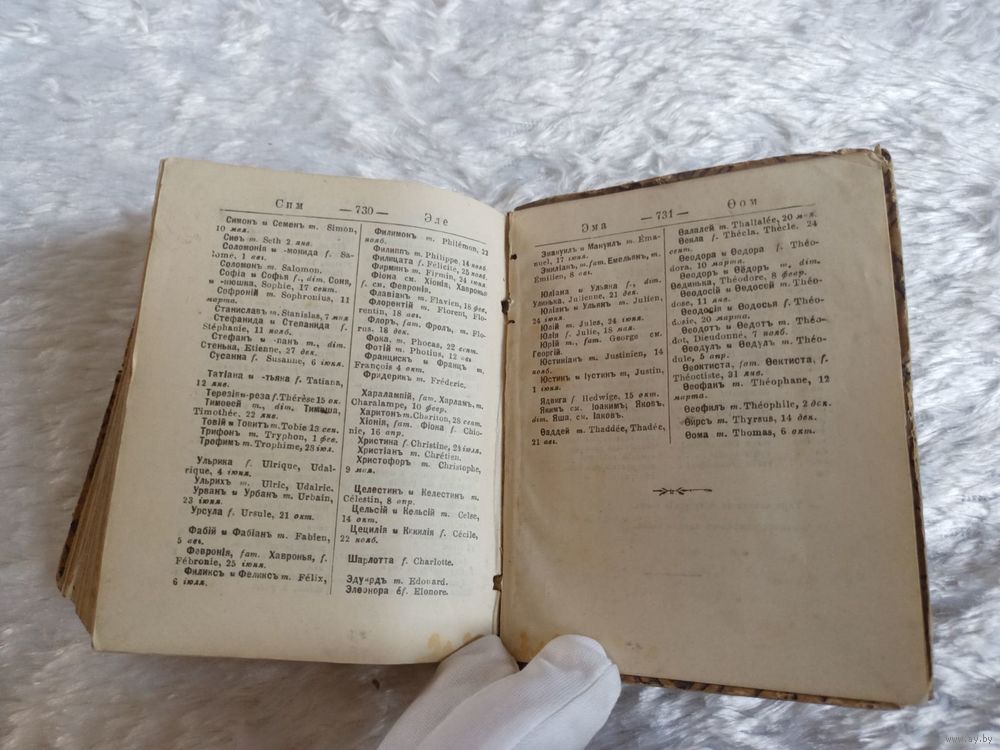 Спм — 730 — Эле
Симонъ и Семенъ m. Simon,
10 мая.
Сиѳъ m. Seth 2 янв.
Соломонія и -монида f. Sa-
lomé, 1 авг.
Соломонъ m. Salomon.
Софія и Софья f., dim. Соня,
и -пюшка, Sophie, 17 сент.
Софроній m. Sophronius, 11
марта.
Станиславъ m. Stanislas, 7 мая
Стефанида и Степанида f.
Stéphanie, 11 нояб.
Стефанъ и -панъ m., dim.
Стенька, Etienne, 27 дек.
Сусанна f. Susanne, 6 іюня.
Татіана и -тьяна f. Tatiana,
12 янв.
Терезія-реза f. Thérèse 15 ок.
Тимоѳей m., dim. Тимоша,
Timothée. 22 янв.
Товій и Товитъ m. Tobie 13 сен.
Трифонъ m. Tryphon, 1 фев.
Трофимъ m. Trophime, 23 іюл.
Ульрика f. Ulrique, Udal-
rique, 4 іюля.
Ульрихъ m. Ulric, Udalric.
Урванъ и Урбанъ m. Urbain,
23 іюня.
Урсула f. Ursule, 21 окт.
Фабій и Фабіанъ m. Fabien,
5 авг.
Февронія, fam. Хавронья, f.
Fébronie, 25 іюня.
Филиксъ и Феликсъ m. Félix,
6 іюля.
Филимонъ m. Philémon, 22
нояб.
Филиппъ m. Philippe, 14 нояб.
Филицата f. Félicité, 25 нояб.
Фирминъ m. Firmin, 24 іюня.
Фіона см. Хіонія, Хавронья
f. см. Февронія.
Флавіанъ m. Flavien, 18 фев.
Флорентій m. Florent, Flo-
rentin, 18 авг.
Флоръ, fam. Фролъ, m. Flo-
rus. 18 дек.
Фока, m. Phocas, 22 сент.
Фотій m. Photius, 12 авг.
Францискъ и Францъ m.
François 4 окт.
Фридерик m. Fréderic.
Харалампій, fam. Харламъ, m.
Charalampe, 10 февр.
Харитонъ m. Chariton, 28 сент.
Хіонія, fam. Фіона f. Chio-
nie, 16 апр.
Христина f. Christine, 24 іюля.
Христіанъ m. Chrétien.
Христофоръ m. Christophe,
9 мая.
Целестинъ и Келестинъ m.
Célestin, 8 апр.
Цельсій и Кельсій m. Celse,
14 окт.
Цецилія и Кикилія f. Cécile,
22 нояб.
Шарлотта f. Charlotte.
Эдуардъ m. Edouard.
Элеонора f. Elonore.
Эма — 731 — Ѳом
Энануилъ и Мануилъ m. Ema-
nuel, 17 іюня.
Эмиліанъ, m. fam. Емельянъ, m.
Emilien, 8 авг.
Юліана и Ульяна f., dim.
Улинька, Julienne, 21 дек.
Юліанъ и Ульянъ m. Julien,
24 іюня.
Юлій m. Jules, 24 іюня.
Юлія f. Julie, 18 мая.
Юрій m., fam. George см.
Георгій.
Юстиніанъ m. Justinien, 14
нояб.
Юстинъ и Іустинъ m, Justin,
1 іюня.
Ядвига f. Hedwige, 15 окт.
Якимъ см. Іоакимъ; Яковъ,
dim. Яша, см. Іаковъ.
Ѳаддей m. Thaddée, Thadée,
21 авг.
Ѳалалей m. Thallalée, 20 мая.
Ѳекла f. Thécla. Thècle. 24
сент.
Ѳедора и Ѳеодора f. Théo-
dora, 10 марта.
Ѳеодоръ и Ѳёдоръ m. dim.
Ѳединька, Théodore, 8 февр.
Ѳеодосій и Ѳедосѣй m. Théo-
dose, 11 янв.
Ѳеодосія и Ѳедосья f. Théo-
dosie, 20 марта.
Ѳеодотъ и Ѳедотъ m. Théo-
dot, Dieudonné, 7 нояб.
Ѳеодулъ и Ѳедулъ m. Théo-
dule, 5 апр.
Ѳеоктиста, fam. Ѳектиста, f.
Théoctiste, 31 янв.
Ѳеофанъ m. Théophane, 12
марта.
Ѳеофилъ m. Théophile, 2 дек.
Ѳирсъ m. Thyrsus, 14 дек.
Ѳома m. Thomas, 6 окт.
www.ay.by